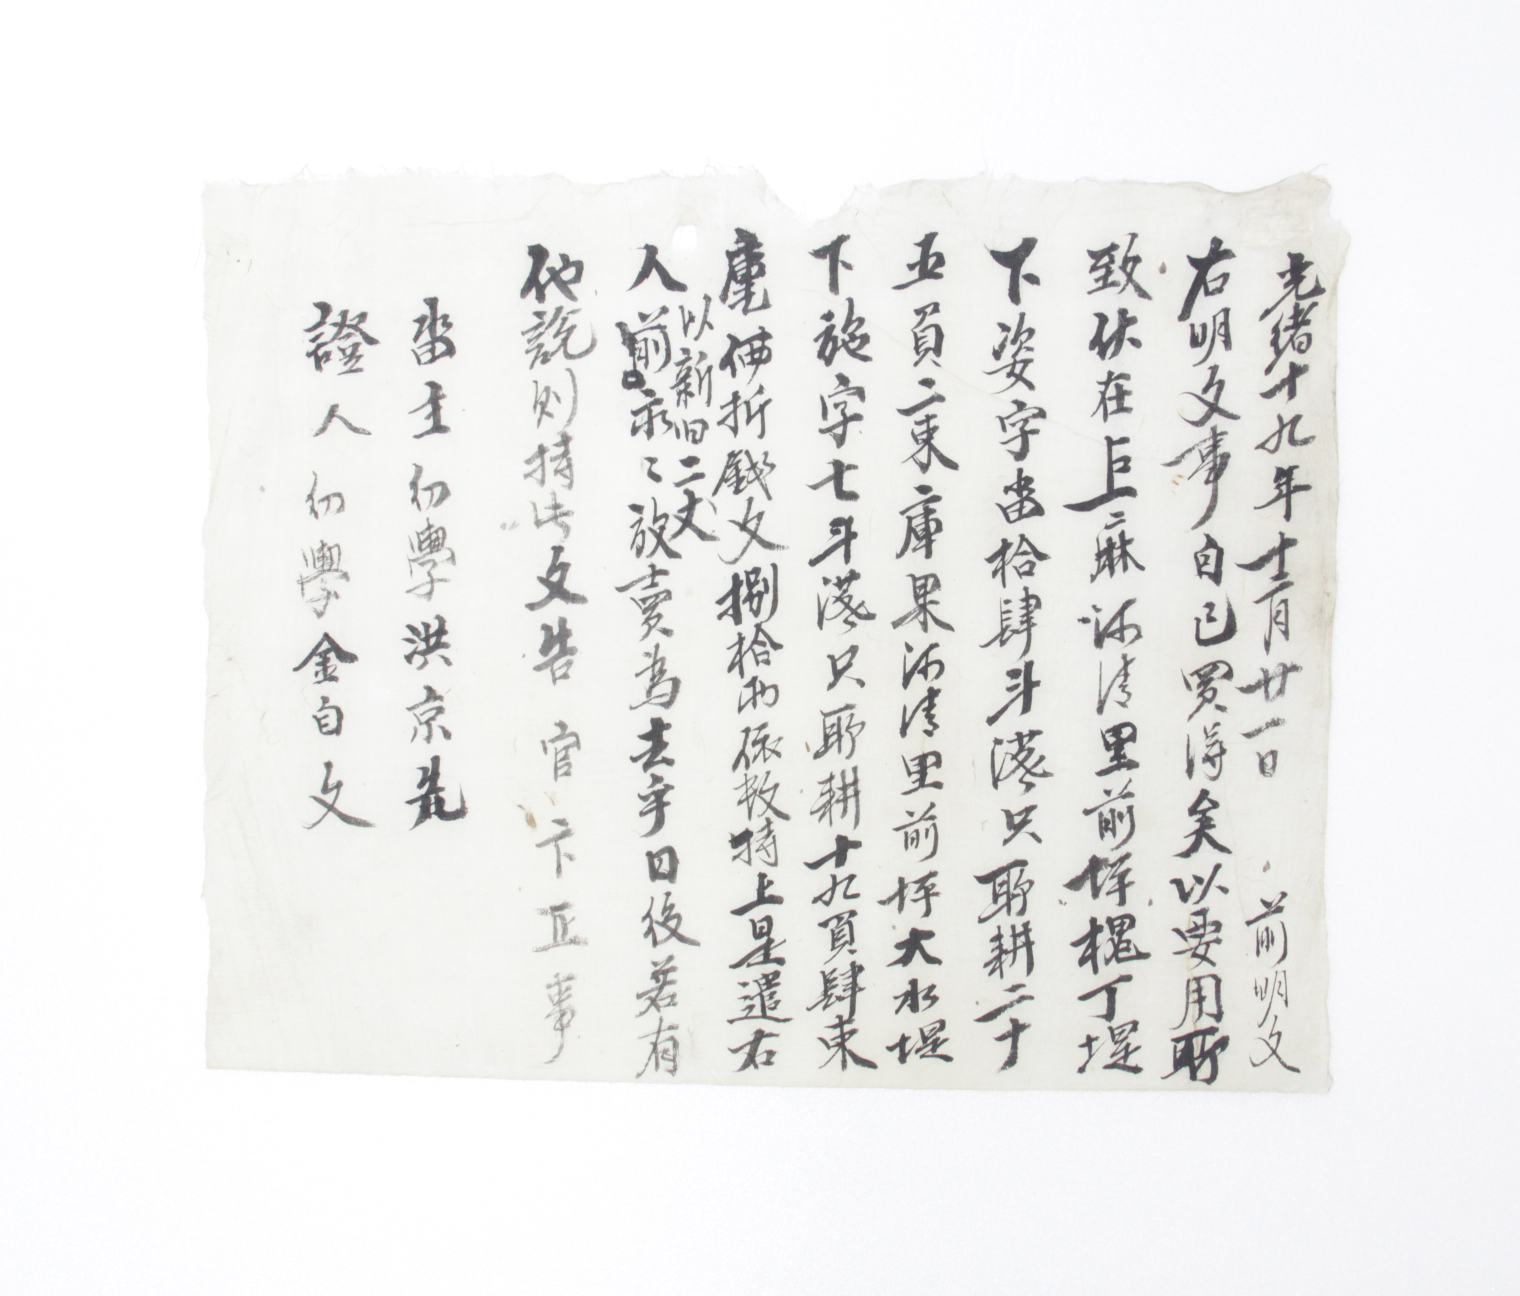 光緒十九年十二月廿一日 前明文
右明文事自己買得矣以要用所
致伏在上麻 清里前坪槐丁堤
下姿字畓拾肆斗落只所耕二十
五負二束庫果 清里前坪大水堤
下施字七斗落只所耕十九負肆束
庫価折錢文捌拾兩依數捧上是遣右
人前以新旧二丈永々放賣爲去乎日後若有
他説則持此文告 官卞正事
畓主幼學洪京先
證人幼學金自文